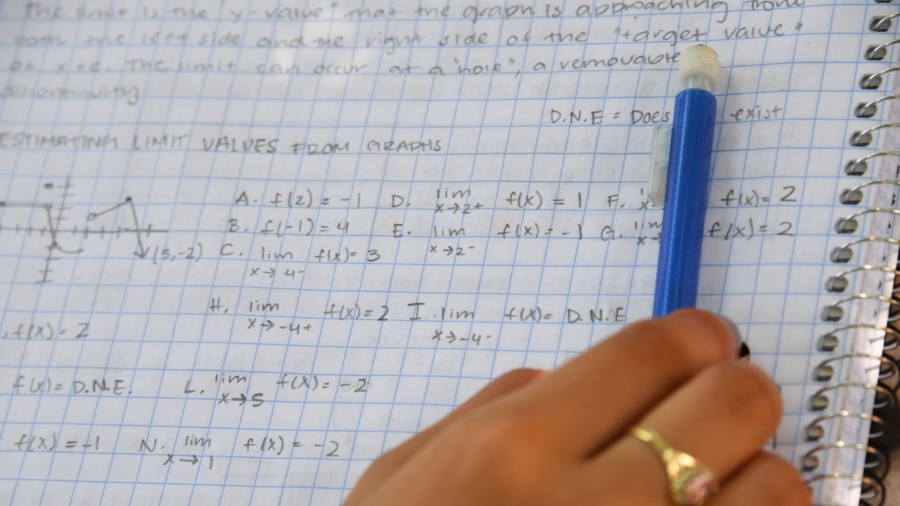 The limit is the "y-value" that the graph is approaching from
both the left side and the right side of the "target value"
of x=c. The limit can occur at a "hole", a removable
discontinuity.
D.N.E = Does exist
ESTIMATING LIMIT VALUES FROM GRAPHS
A. f(2) = -1 D. lim x→2+ f(x) = 1 F. f(x) = 2
B. f(-1) = 4 E. lim x→2- f(x) = -1 G. lim f(x) = 2
(5,-2) C. lim x→4- f(x) = 3
H. lim x→-4+ f(x) = 2 I. lim x→-4- f(x) = D.N.E
f(x) = 2
f(x) = D.N.E. L. lim x→5 f(x) = -2
f(x) = -1 N. lim x→1 f(x) = -2